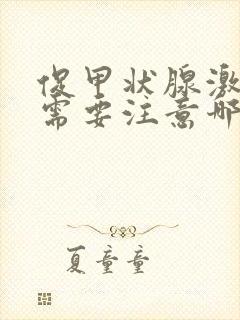 促甲状腺激
需要注意哪
夏童童